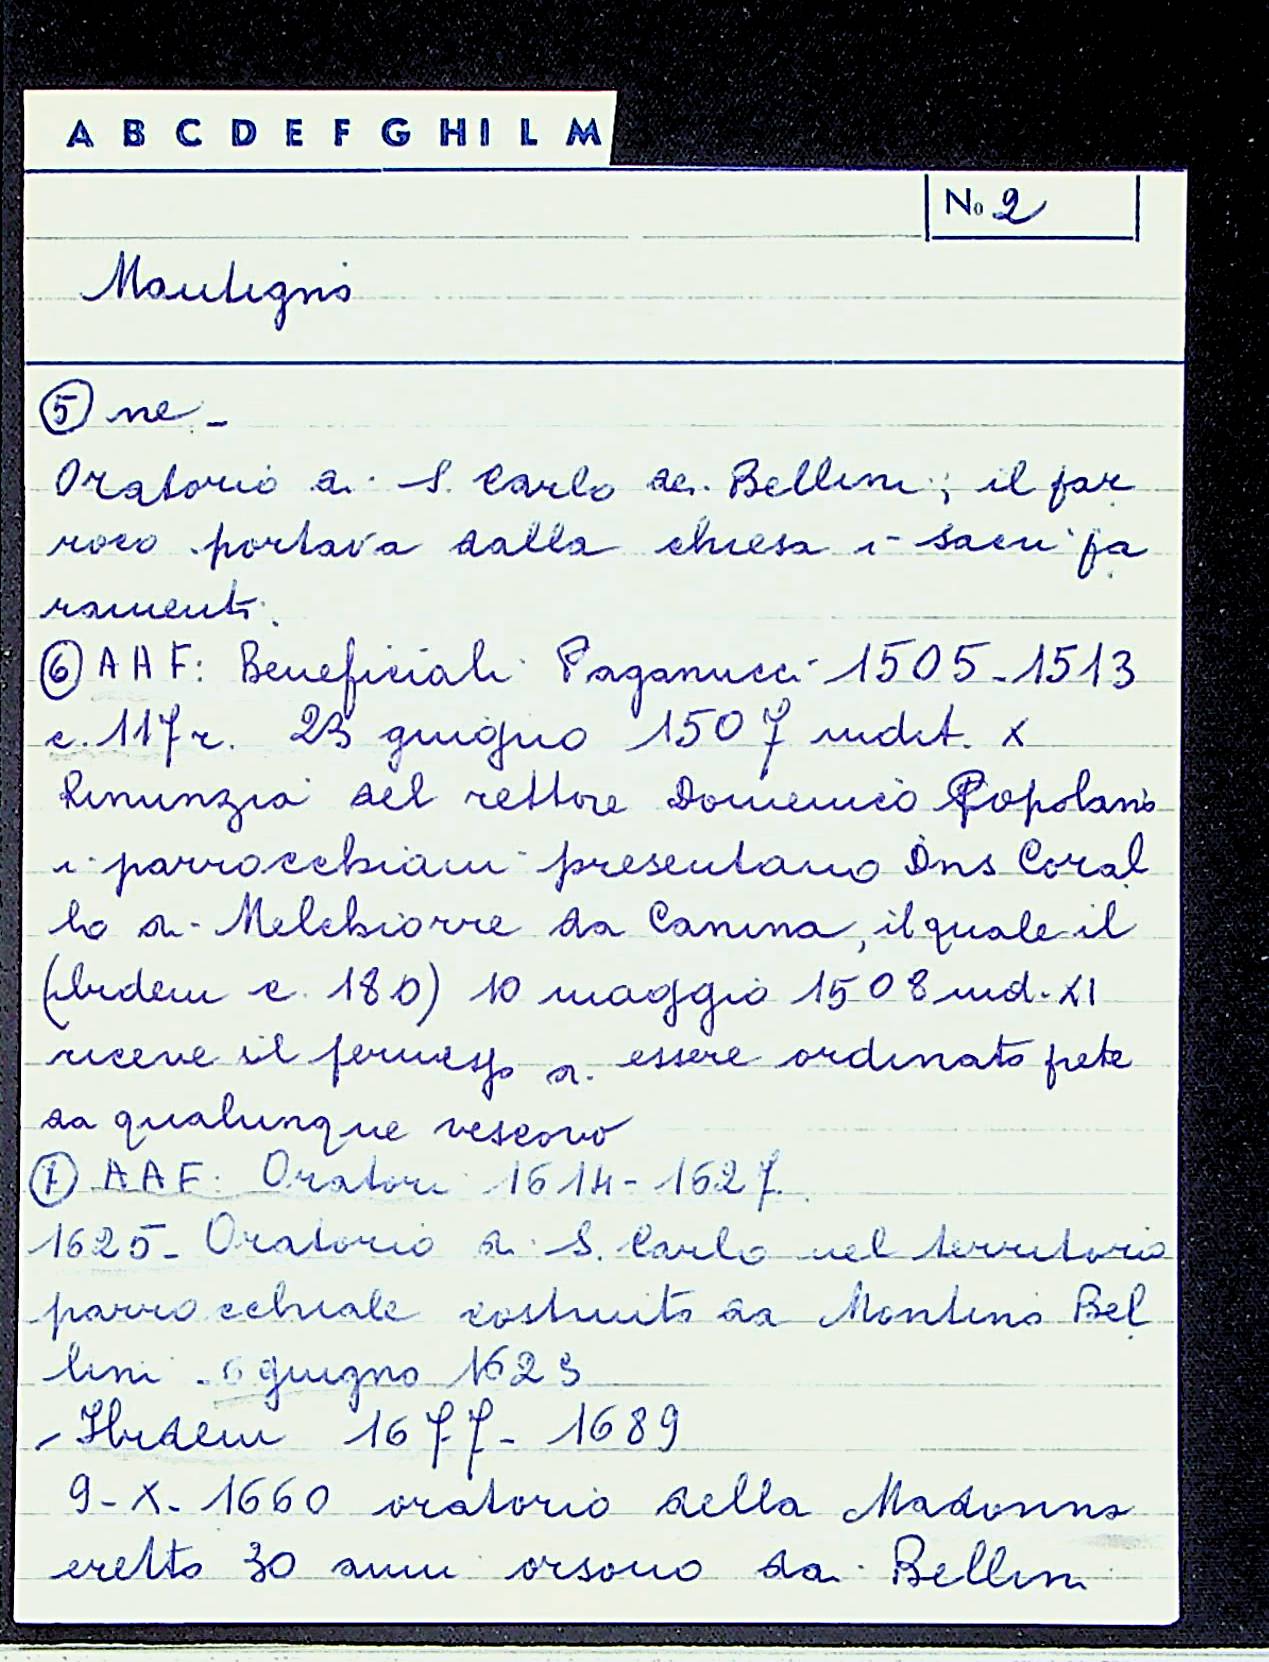 A B C D E F G H I L M
No 2
Mantigno
5 ne -
Oratorio di S. Carlo dei Bellini; il par
roco portava dalla chiesa i sacri pa
ramenti.
6 AAF: Beneficiali Paganucci 1505-1513
c. 117 r. 23 giugno 1507 indit. X
Rinunzia del rettore Domenico Popolani
i parrocchiani presentano Dns Coral
lo di Melchiorre da Canina, il quale il
(Ibidem c. 180) 10 maggio 1508 ind. XI
riceve il permesso di essere ordinato prete
da qualunque vescovo
7 AAF: Oratori 1614-1627.
1625- Oratorio di S. Carlo nel territorio
parrocchiale costruito da Montino Bel
lini - 6 giugno 1623
- Ibidem 1677- 1689
9-X-1660 oratorio della Madonna
eretto 30 anni orsono dai Bellini